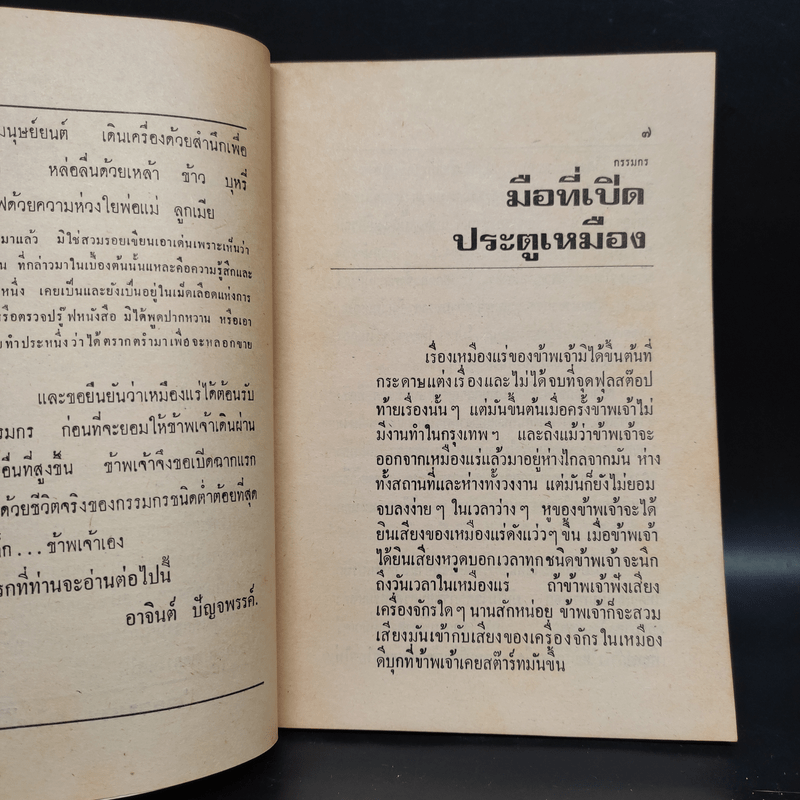 มนุษย์ยนต์ เดินเครื่องด้วยสำนึกเพื่อ
หล่อลื่นด้วยเหล้า ข้าว บุหรี่
ด้วยความห่วงใยพ่อแม่ ลูกเมีย
มาแล้ว มิใช่สวมรอยเขียนเอาเด่นเพราะเห็นว่า
ที่กล่าวมาในเบื้องต้นนั้นแหละคือความรู้สึกและ
หนึ่ง เคยเป็นและยังเป็นอยู่ในเม็ดเลือดแห่งการ
รือตรวจปรู๊ฟหนังสือ มิได้พูดปากหวาน หรือเอา
ทำประหนึ่งว่าได้ตรากตรำมาเพื่อจะหลอกขาย
และขอยืนยันว่าเหมืองแร่ได้ต้อนรับ
รมกร ก่อนที่จะยอมให้ข้าพเจ้าเดินผ่าน
อื่นที่สูงขึ้น ข้าพเจ้าจึงขอเปิดฉากแรก
ด้วยชีวิตจริงของกรรมกรชนิดต่ำต้อยที่สุด
...ข้าพเจ้าเอง
รกที่ท่านจะอ่านต่อไปนี้
อาจินต์ ปัญจพรรค์.
๗
กรรมกร
มือที่เปิด
ประตูเหมือง
เรื่องเหมืองแร่ของข้าพเจ้ามิได้ขึ้นต้นที่
กระดาษแต่งเรื่องและไม่ได้จบที่จุดฟุลสต๊อป
ท้ายเรื่องนั้นๆ แต่มันขึ้นต้นเมื่อครั้งข้าพเจ้าไม่
มีงานทำในกรุงเทพฯ และถึงแม้ว่าข้าพเจ้าจะ
ออกจากเหมืองแร่แล้วมาอยู่ห่างไกลจากมัน ห่าง
ทั้งสถานที่และห่างทั้งวงงาน แต่มันก็ยังไม่ยอม
จบลงง่ายๆ ในเวลาว่างๆ หูของข้าพเจ้าจะได้
ยินเสียงของเหมืองแร่ดังแว่วๆขึ้น เมื่อข้าพเจ้า
ได้ยินเสียงหวูดบอกเวลาทุกชนิดข้าพเจ้าจะนึก
ถึงวันเวลาในเหมืองแร่ ถ้าข้าพเจ้าฟังเสียง
เครื่องจักรใดๆ นานสักหน่อย ข้าพเจ้าก็จะสวม
เสียงมันเข้ากับเสียงของเครื่องจักรในเหมือง
ดีบุกที่ข้าพเจ้าเคยสต๊าร์ทมันขึ้น